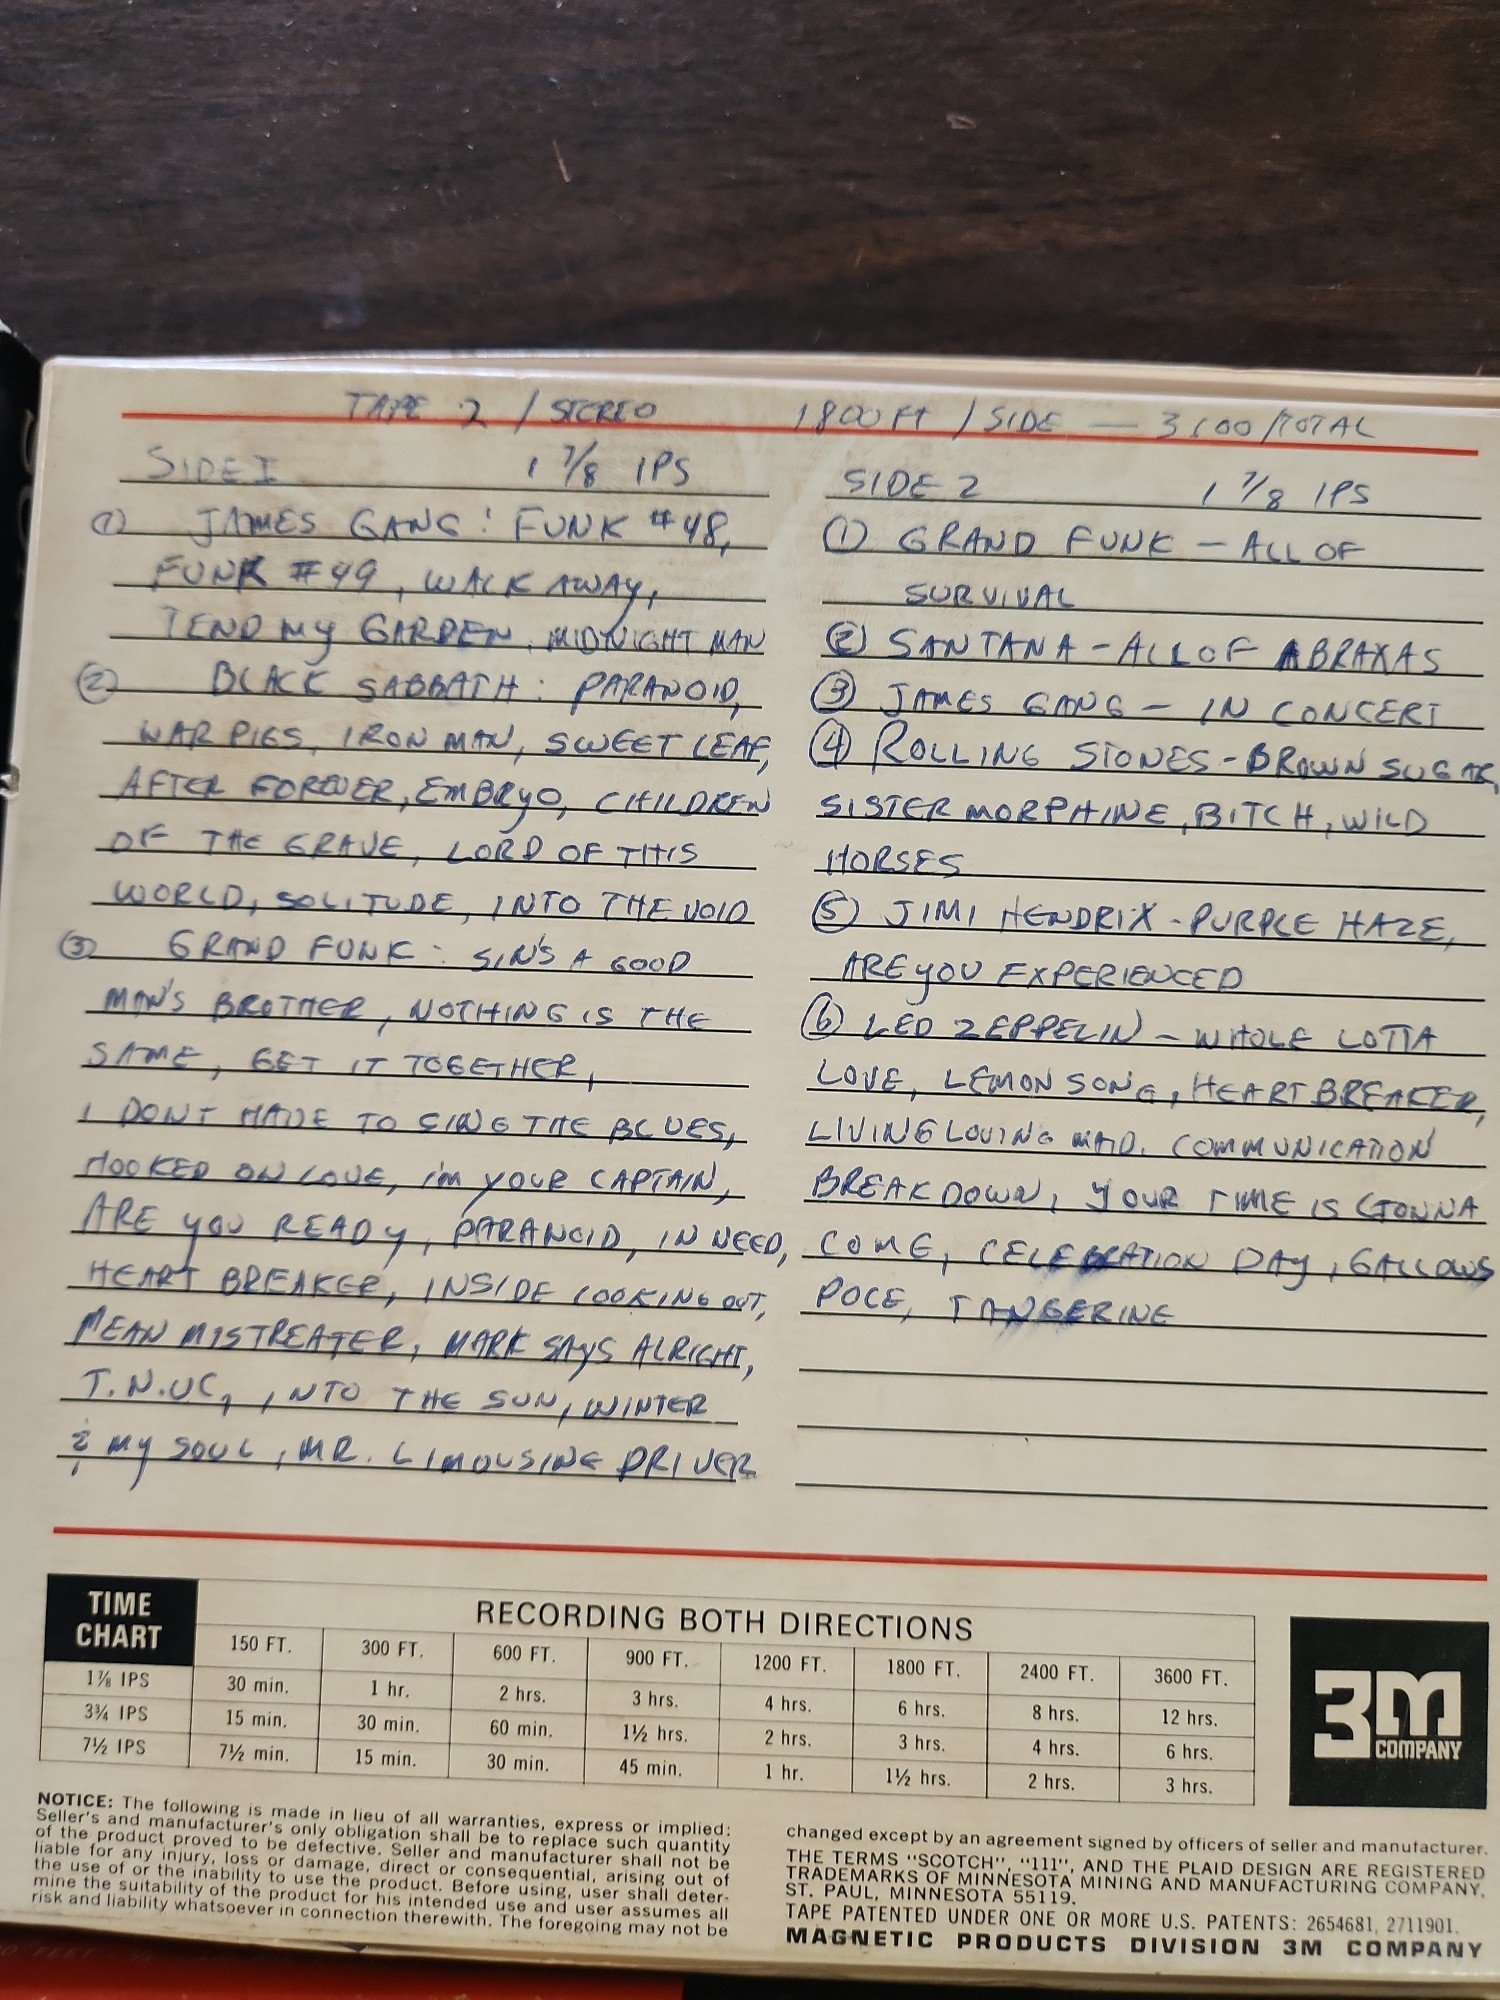 TAPE 2 / STEREO 1800 FT / SIDE — 3600 / TOTAL
SIDE I 1 7/8 IPS
① JAMES GANG: FUNK #48,
FUNK #49, WALK AWAY,
TEND MY GARDEN, MIDNIGHT MAN
② BLACK SABBATH: PARANOID,
WAR PIGS, IRON MAN, SWEET LEAF,
AFTER FOREVER, EMBRYO, CHILDREN
OF THE GRAVE, LORD OF THIS
WORLD, SOLITUDE, INTO THE VOID
③ GRAND FUNK: SIN'S A GOOD
MAN'S BROTHER, NOTHING IS THE
SAME, GET IT TOGETHER,
I DONT HAVE TO SING THE BLUES,
HOOKED ON LOVE, I'M YOUR CAPTAIN,
ARE YOU READY, PARANOID, IN NEED,
HEART BREAKER, INSIDE LOOKING OUT,
MEAN MISTREATER, MARK SAYS ALRIGHT,
T.N.UC, INTO THE SUN, WINTER
& MY SOUL, MR. LIMOUSINE DRIVER
SIDE 2 1 7/8 IPS
① GRAND FUNK — ALL OF
SURVIVAL
② SANTANA - ALL OF ABRAXAS
③ JAMES GANG — IN CONCERT
④ ROLLING STONES - BROWN SUGAR,
SISTER MORPHINE, BITCH, WILD
HORSES
⑤ JIMI HENDRIX - PURPLE HAZE,
ARE YOU EXPERIENCED
⑥ LED ZEPPELIN — WHOLE LOTTA
LOVE, LEMON SONG, HEARTBREAKER,
LIVING LOVING MAID, COMMUNICATION
BREAKDOWN, YOUR TIME IS GONNA
COME, CELEBRATION DAY, GALLOWS
POLE, TANGERINE
TIME CHART
RECORDING BOTH DIRECTIONS
150 FT. 300 FT. 600 FT. 900 FT. 1200 FT. 1800 FT. 2400 FT. 3600 FT.
1⅞ IPS 30 min. 1 hr. 2 hrs. 3 hrs. 4 hrs. 6 hrs. 8 hrs. 12 hrs.
3¾ IPS 15 min. 30 min. 60 min. 1½ hrs. 2 hrs. 3 hrs. 4 hrs. 6 hrs.
7½ IPS 7½ min. 15 min. 30 min. 45 min. 1 hr. 1½ hrs. 2 hrs. 3 hrs.
3M
COMPANY
NOTICE: The following is made in lieu of all warranties, express or implied:
Seller's and manufacturer's only obligation shall be to replace such quantity
of the product proved to be defective. Seller and manufacturer shall not be
liable for any injury, loss or damage, direct or consequential, arising out of
the use of or the inability to use the product. Before using, user shall deter-
mine the suitability of the product for his intended use and user assumes all
risk and liability whatsoever in connection therewith. The foregoing may not be
changed except by an agreement signed by officers of seller and manufacturer.
THE TERMS "SCOTCH", "111", AND THE PLAID DESIGN ARE REGISTERED
TRADEMARKS OF MINNESOTA MINING AND MANUFACTURING COMPANY,
ST. PAUL, MINNESOTA 55119.
TAPE PATENTED UNDER ONE OR MORE U.S. PATENTS: 2654681, 2711901.
MAGNETIC PRODUCTS DIVISION 3M COMPANY